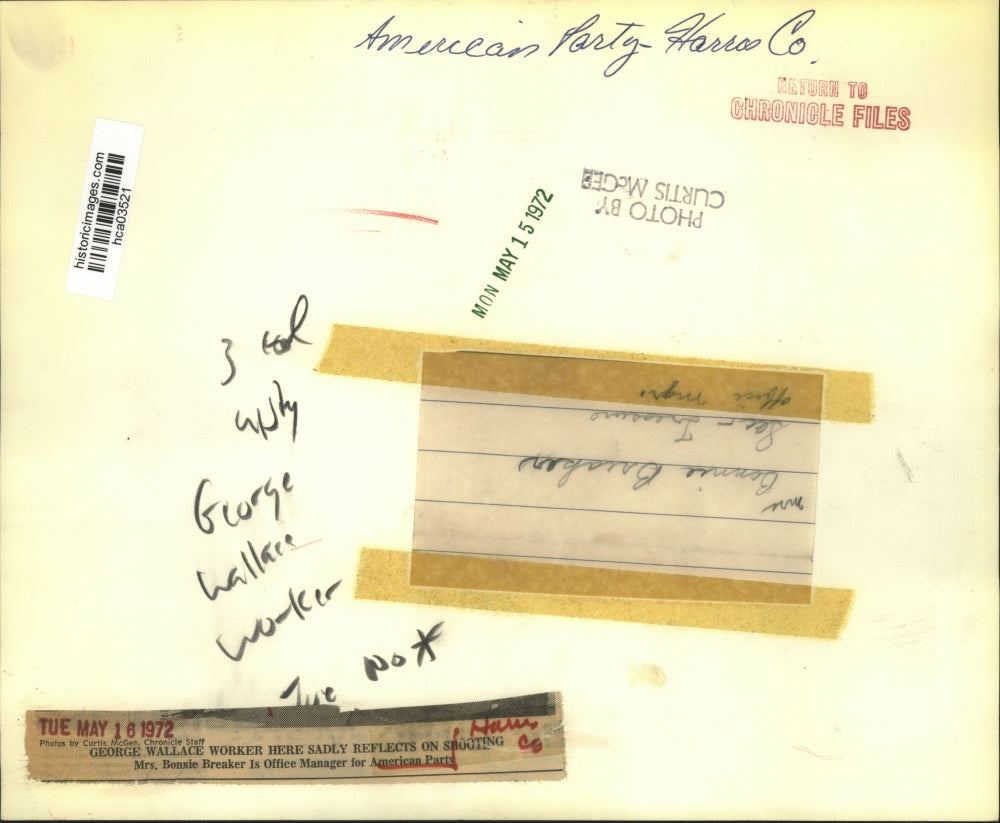 American Party- Harris Co.
RETURN TO
CHRONICLE FILES
historicimages.com
hca03521
PHOTO BY
CURTIS McGEE
MON MAY 15 1972
3 col
George
Wallace
Worker
Mrs
Bonnie Breaker
Sec- Treasure
office mgr.
Tue
TUE MAY 16 1972
Photos by Curtis McGee, Chronicle Staff
GEORGE WALLACE WORKER HERE SADLY REFLECTS ON SHOOTING
Mrs. Bonnie Breaker Is Office Manager for American Party
Harris
Co